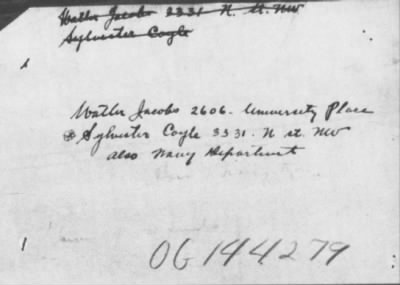 Walter Jacobs 3331 N. St. NW
Sylvester Coyle
Watler Jacobs 2606. University Place
Sylvester Coyle 3331. N st. NW
also Navy Department
OG 144279